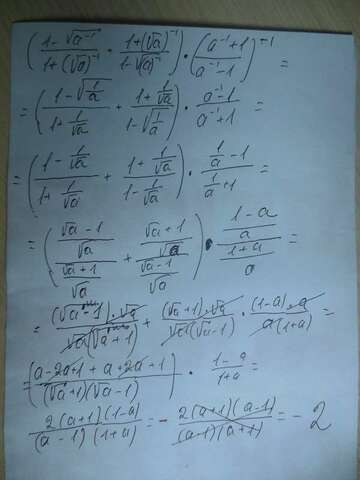 (1-√a⁻¹/1+(√a)⁻¹ · 1+(√a)⁻¹/1-√(a)⁻¹) · (a⁻¹+1/a⁻¹-1)⁻¹ =
= (1-√(1/a)/1+1/√a + 1+1/√a/1-√(1/a)) · a⁻¹-1/a⁻¹+1 =
= (1-1/√a/1+1/√a + 1+1/√a/1-1/√a) · 1/a-1/1/a+1 =
= (√a-1/√a/√a+1/√a + √a+1/√a/√a-1/√a) · 1-a/a/1+a/a =
= (√a-1)·√a/√a(√a+1) + (√a+1)·√a/√a(√a-1) · (1-a)·a/a(1+a) =
= (a-2a+1+a+2a+1/(√a+1)(√a-1)) · 1-a/1+a =
2(a+1)(1-a)/(a-1)(1+a) = - 2(a+1)(a-1)/(a-1)(a+1) = -2